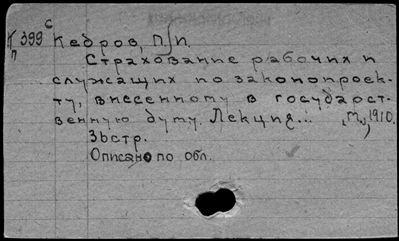 с
К 399 Кедров, П.И.
п Страхование рабочих и
служащих по законопроек-
ту, внесенному в государст-
венную думу. Лекция... М., 1910.
36стр.
Описано по обл.